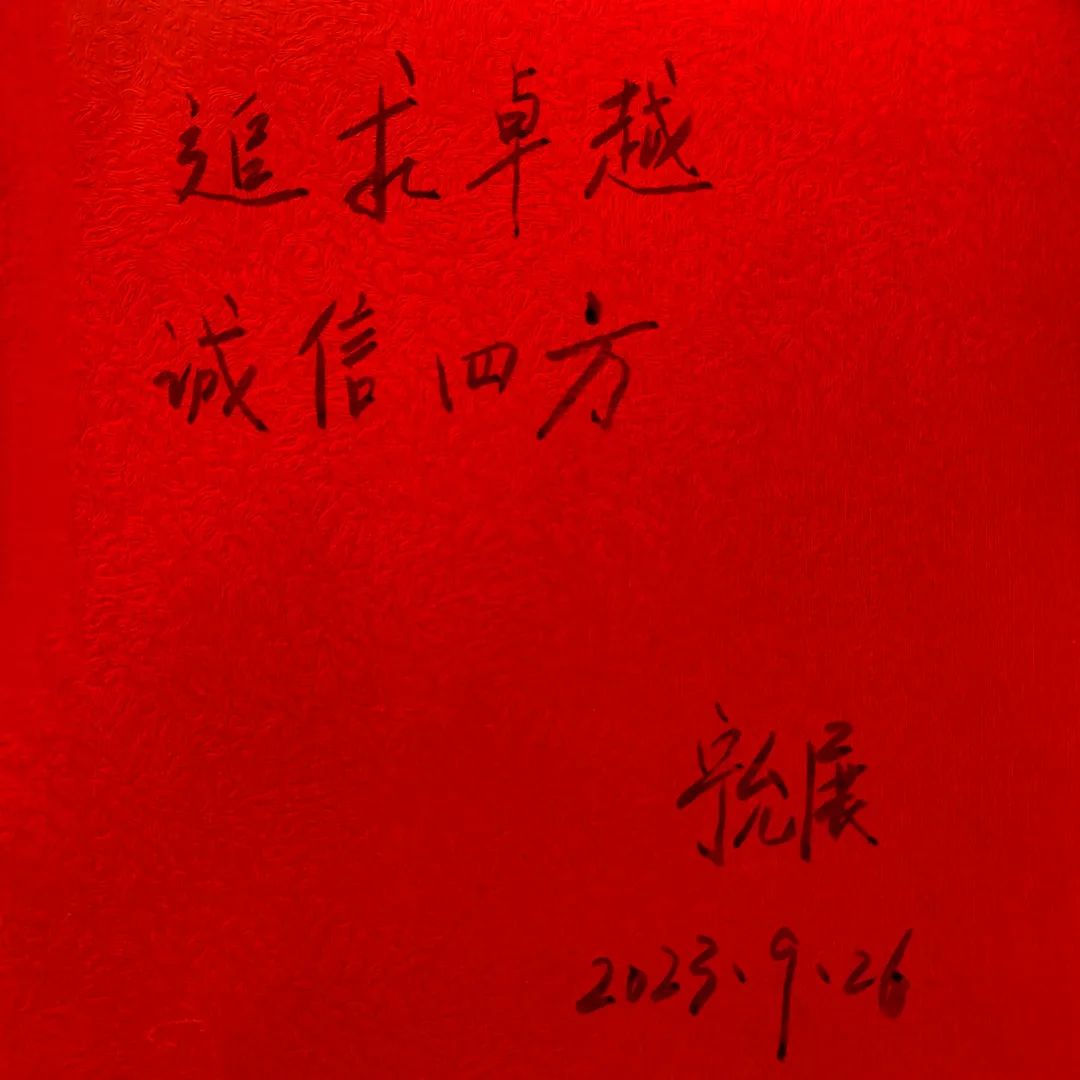 追求卓越
诚信四方
宁允展
2023.9.26